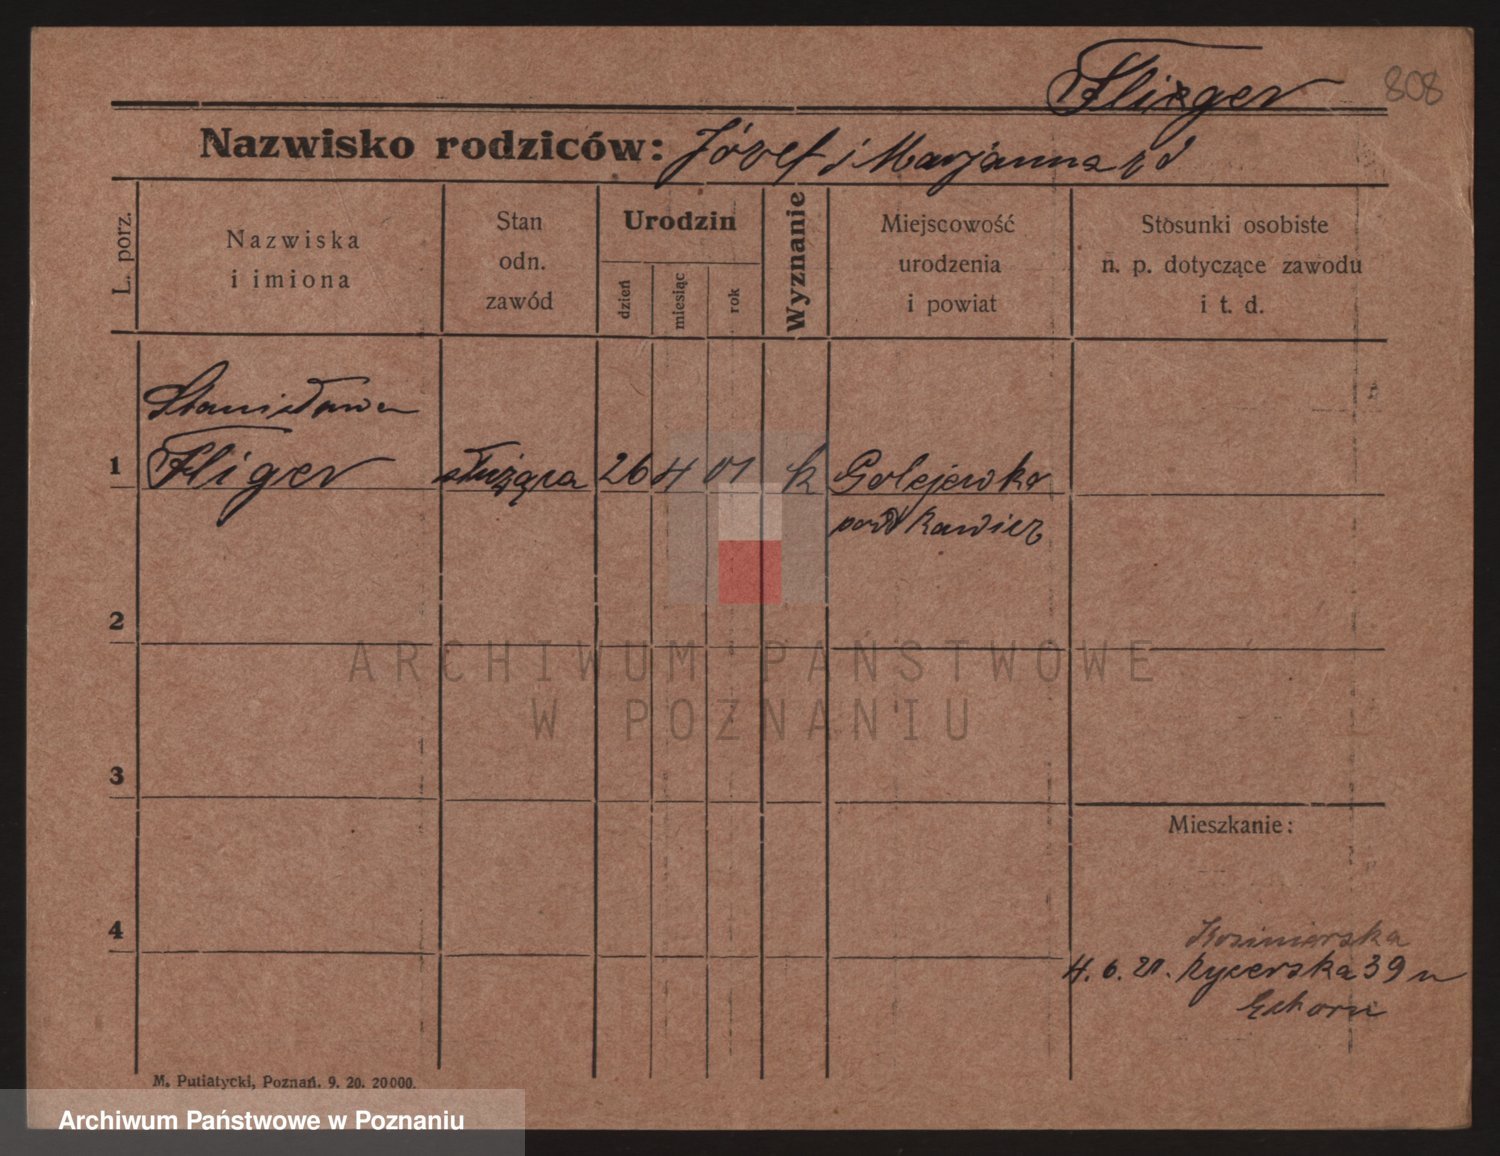 Flieger 808
Nazwisko rodziców: Józef i Marjanna z d
L. porz.
Nazwiska
i imiona
Stan
odn.
zawód
Urodzin
dzień
miesiąc
rok
Wyznanie
Miejscowość
urodzenia
i powiat
Stosunki osobiste
n. p. dotyczące zawodu
i t. d.
Stanisława
1 Fliger służąca 26 4 01 k Golejewko
pow Rawicz
2
ARCHIWUM PAŃSTWOWE
W POZNANIU
3
Mieszkanie:
4
4. 6. 21. Rycerska 39 u
M. Putiatycki, Poznań. 9. 20. 20000.
Archiwum Państwowe w Poznaniu